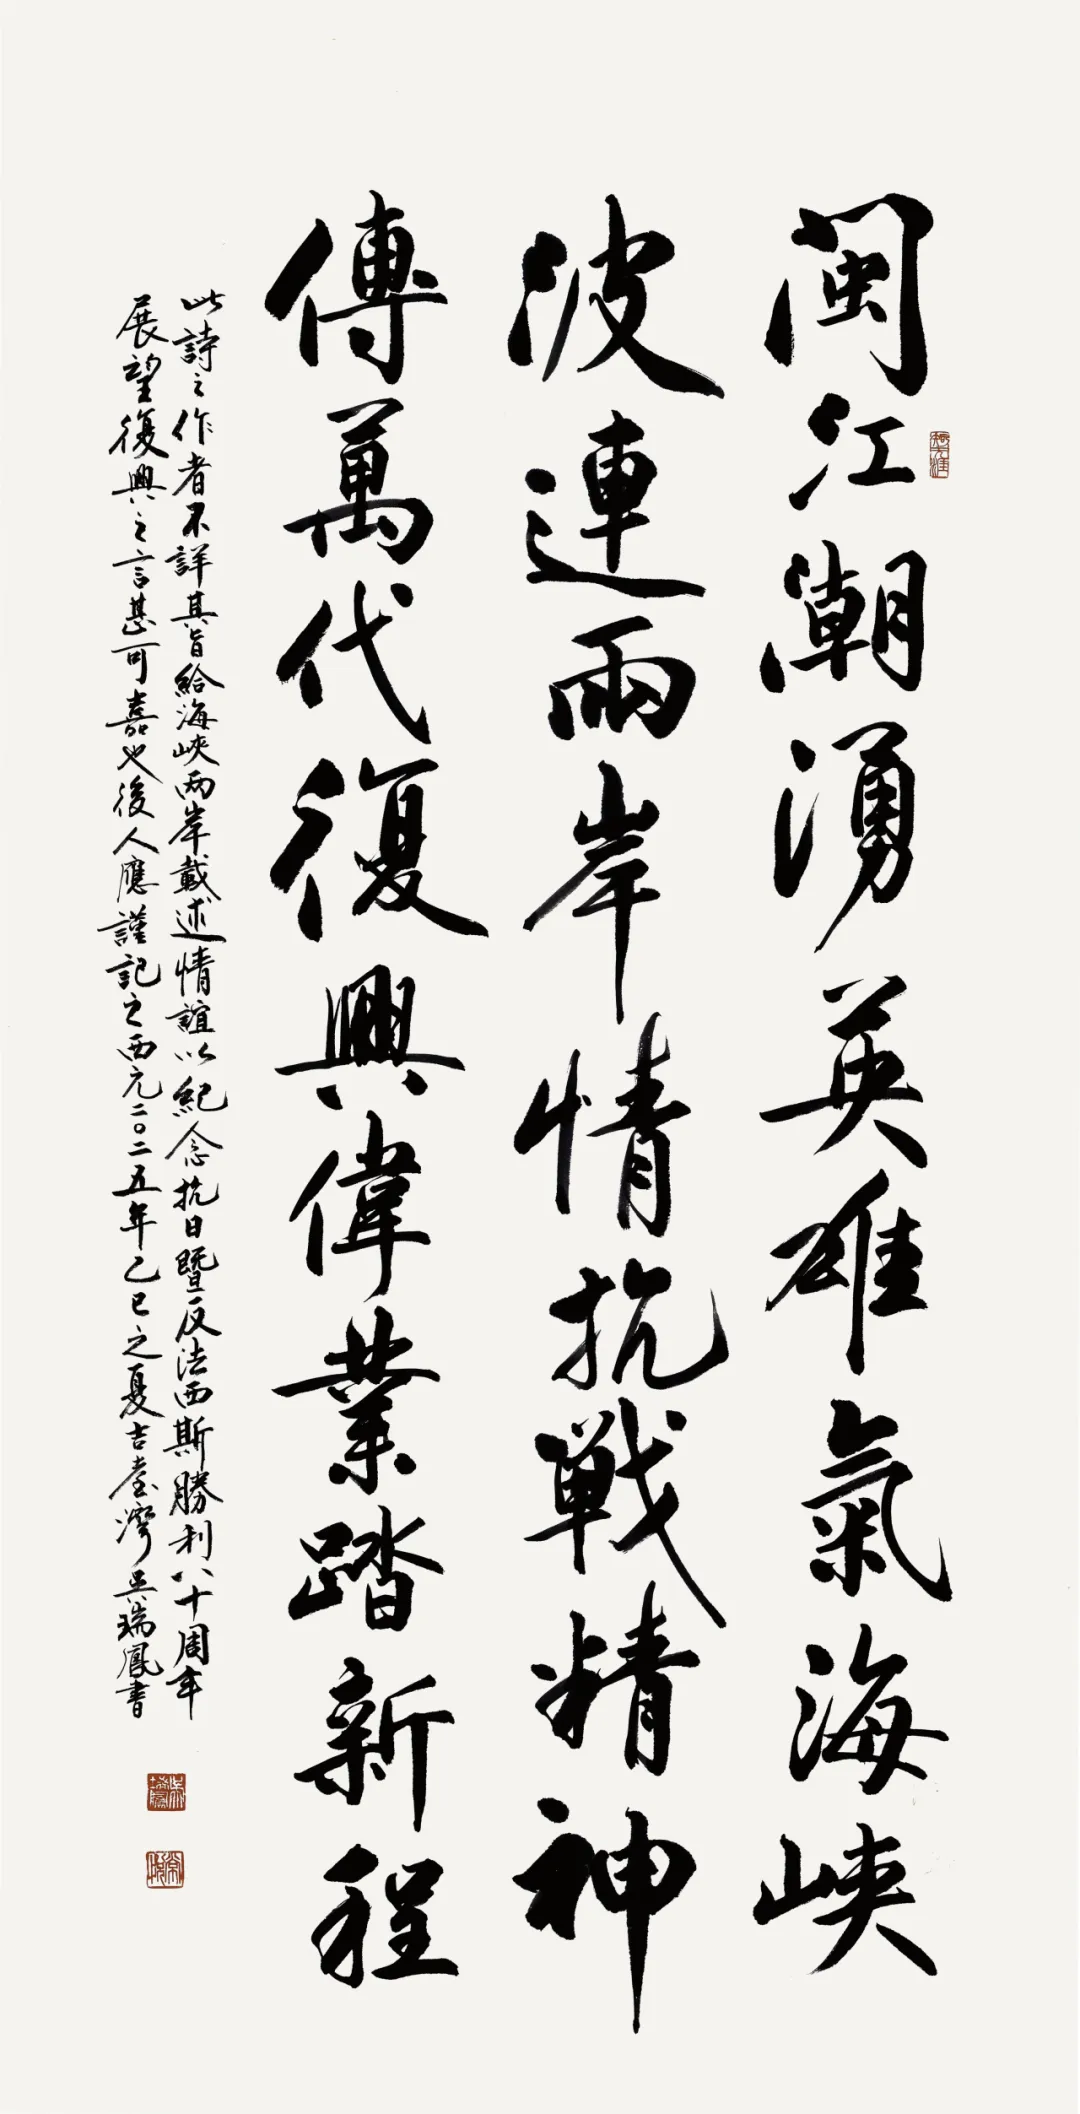 閩江潮湧英雄氣海峽
波連兩岸情抗戰精神
傳萬代復興偉業踏新程
此詩之作者不詳其旨給海峽两岸載述情誼以紀念抗日暨反法西斯勝利八十周年
展望復興之言甚可嘉也後人應謹記之西元二〇二五年乙巳之夏吉臺灣吳瑞鳳書